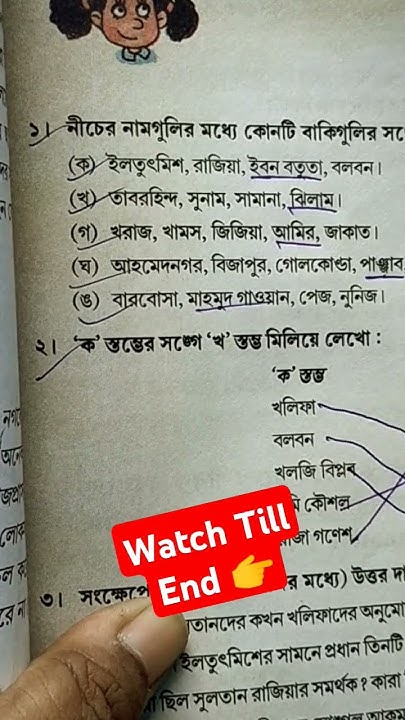 ১। নীচের নামগুলির মধ্যে কোনটি বাকিগুলির সঙ্গে
(ক) ইলতুৎমিশ, রাজিয়া, ইবন বতুতা, বলবন।
(খ) তাবরহিন্দ, সুনাম, সামানা, ঝিলাম।
(গ) খরাজ, খামস, জিজিয়া, আমির, জাকাত।
(ঘ) আহমেদনগর, বিজাপুর, গোলকোন্ডা, পাঞ্জাব,
(ঙ) বারবোসা, মাহমুদ গাওয়ান, পেজ, নুনিজ।
২। 'ক' স্তম্ভের সঙ্গে 'খ' স্তম্ভ মিলিয়ে লেখো :
'ক' স্তম্ভ
খলিফা
বলবন
খলজি বিপ্লব
কৌশল
রাজা গণেশ
Watch Till
End 👉
৩। সংক্ষেপে মধ্যে) উত্তর দা
তানদের কখন খলিফাদের অনুমো
ইলতুৎমিশের সামনে প্রধান তিনটি
ছিল সুলতান রাজিয়ার সমর্থক? কারা